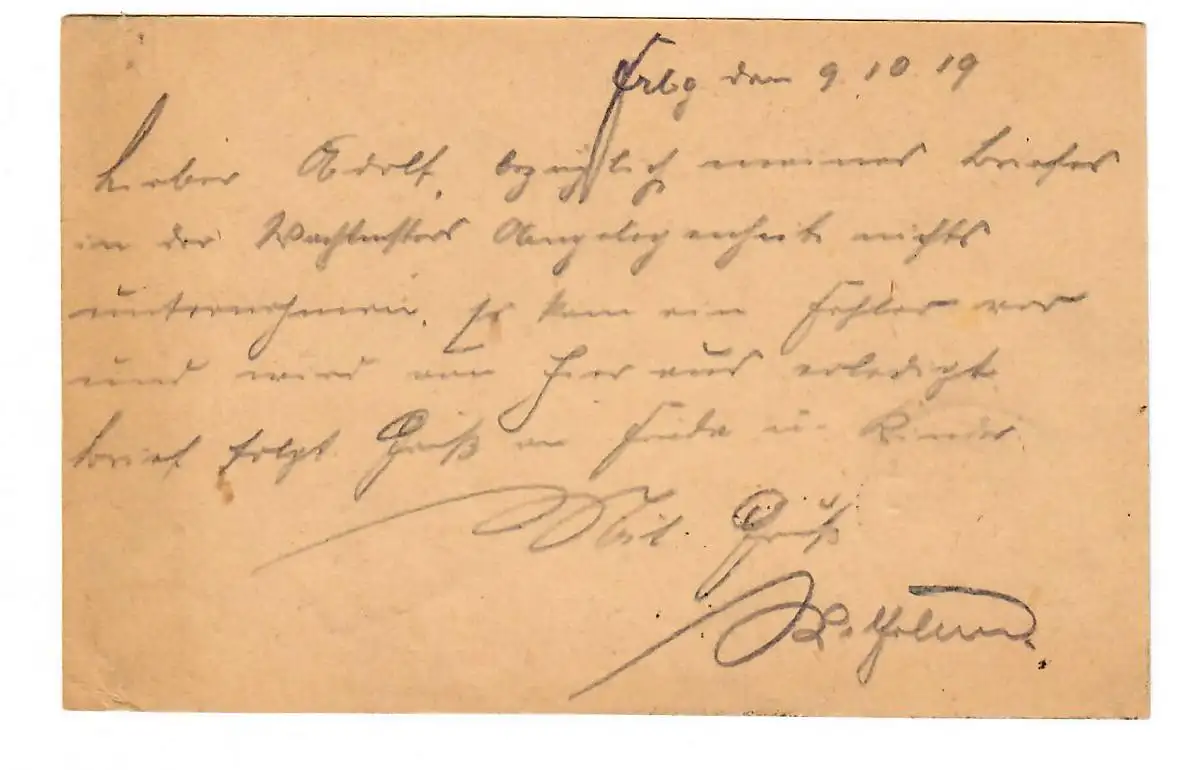 Frbg den 9 10 19
Lieber Adolf, bezüglich meines Briefes
in der Wachtmsters Angelegenheit nichts
unternehmen. Es kam ein Fehler vor
und wird von hier aus erledigt
Brief folgt. Gruß an Frida u. Kinder
Mit Gruß